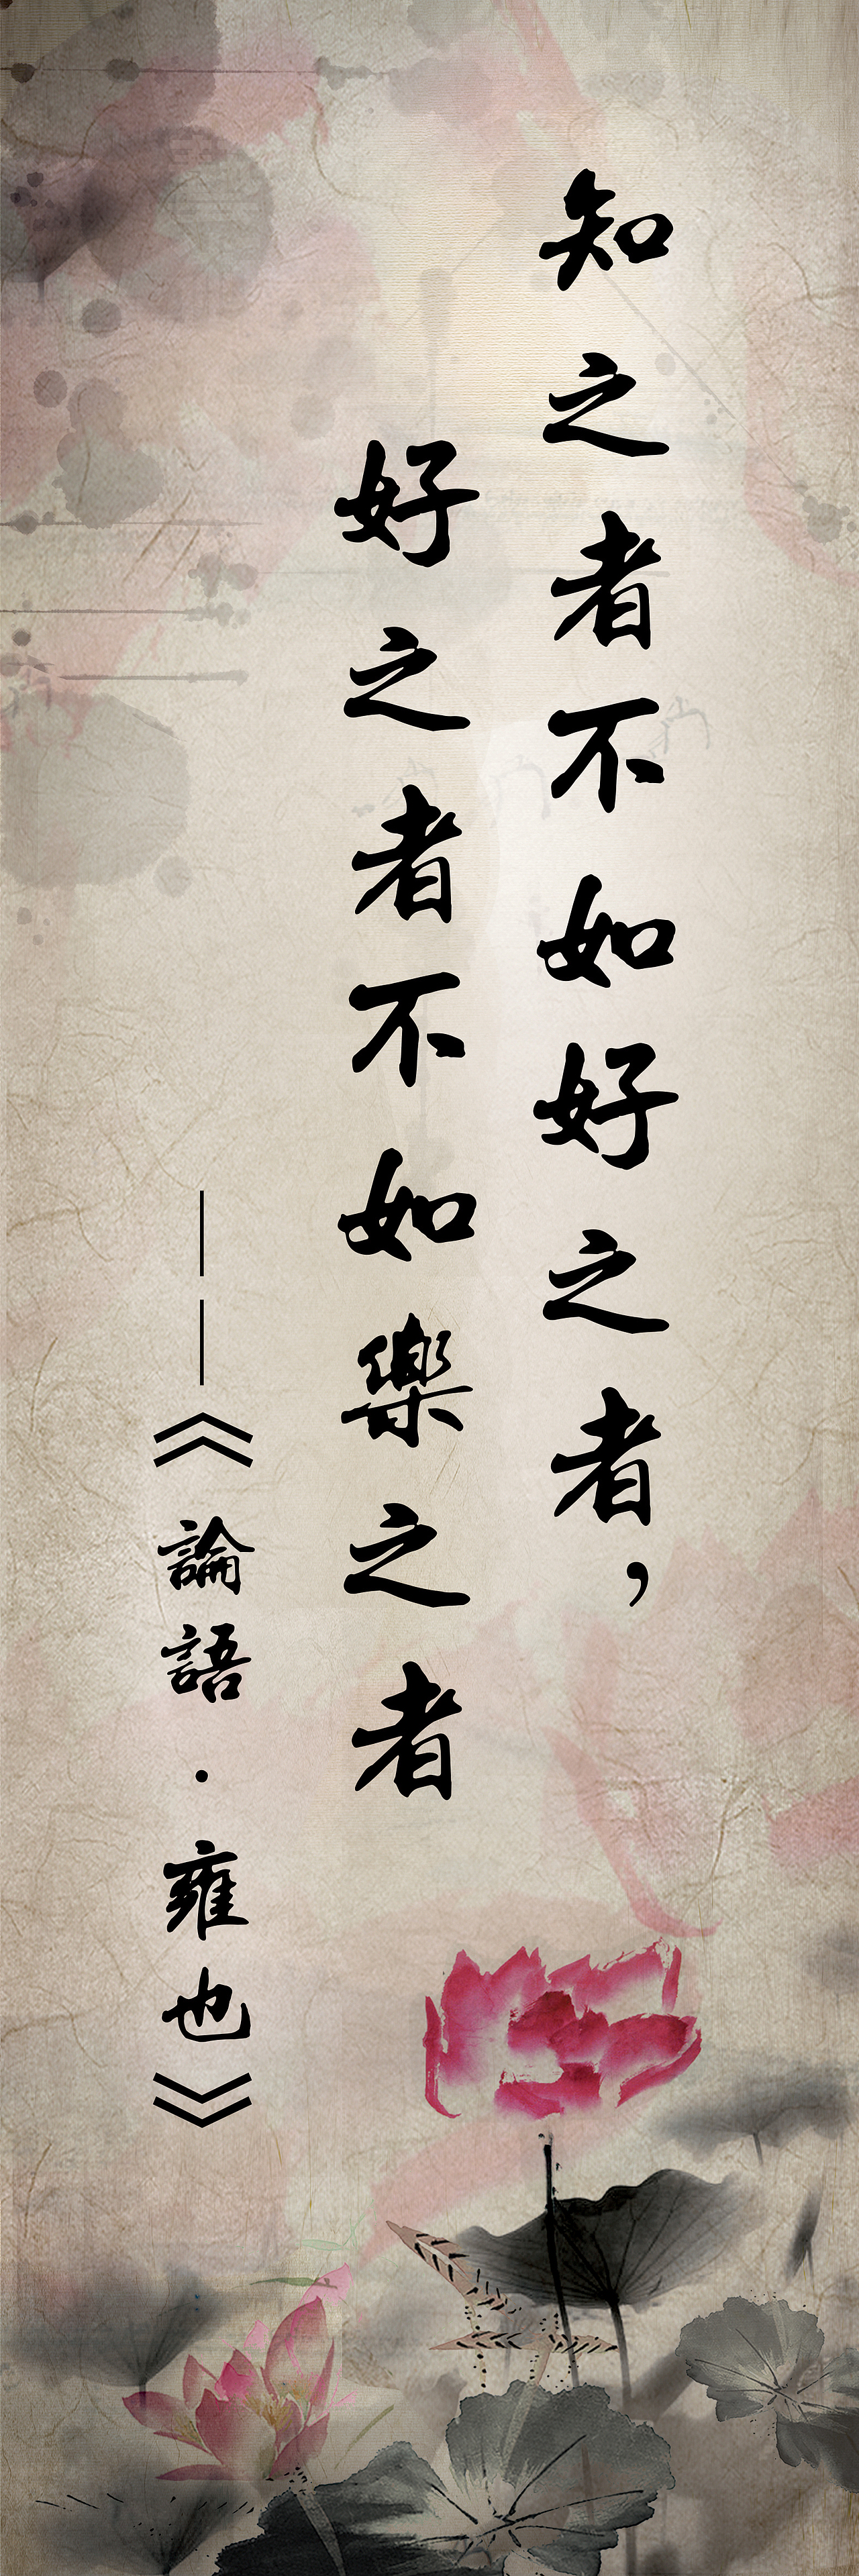 知之者不如好之者，
好之者不如樂之者
——《論語·雍也》